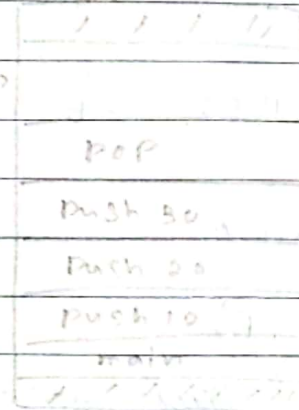 pop
push 30
push 20
push 10
main